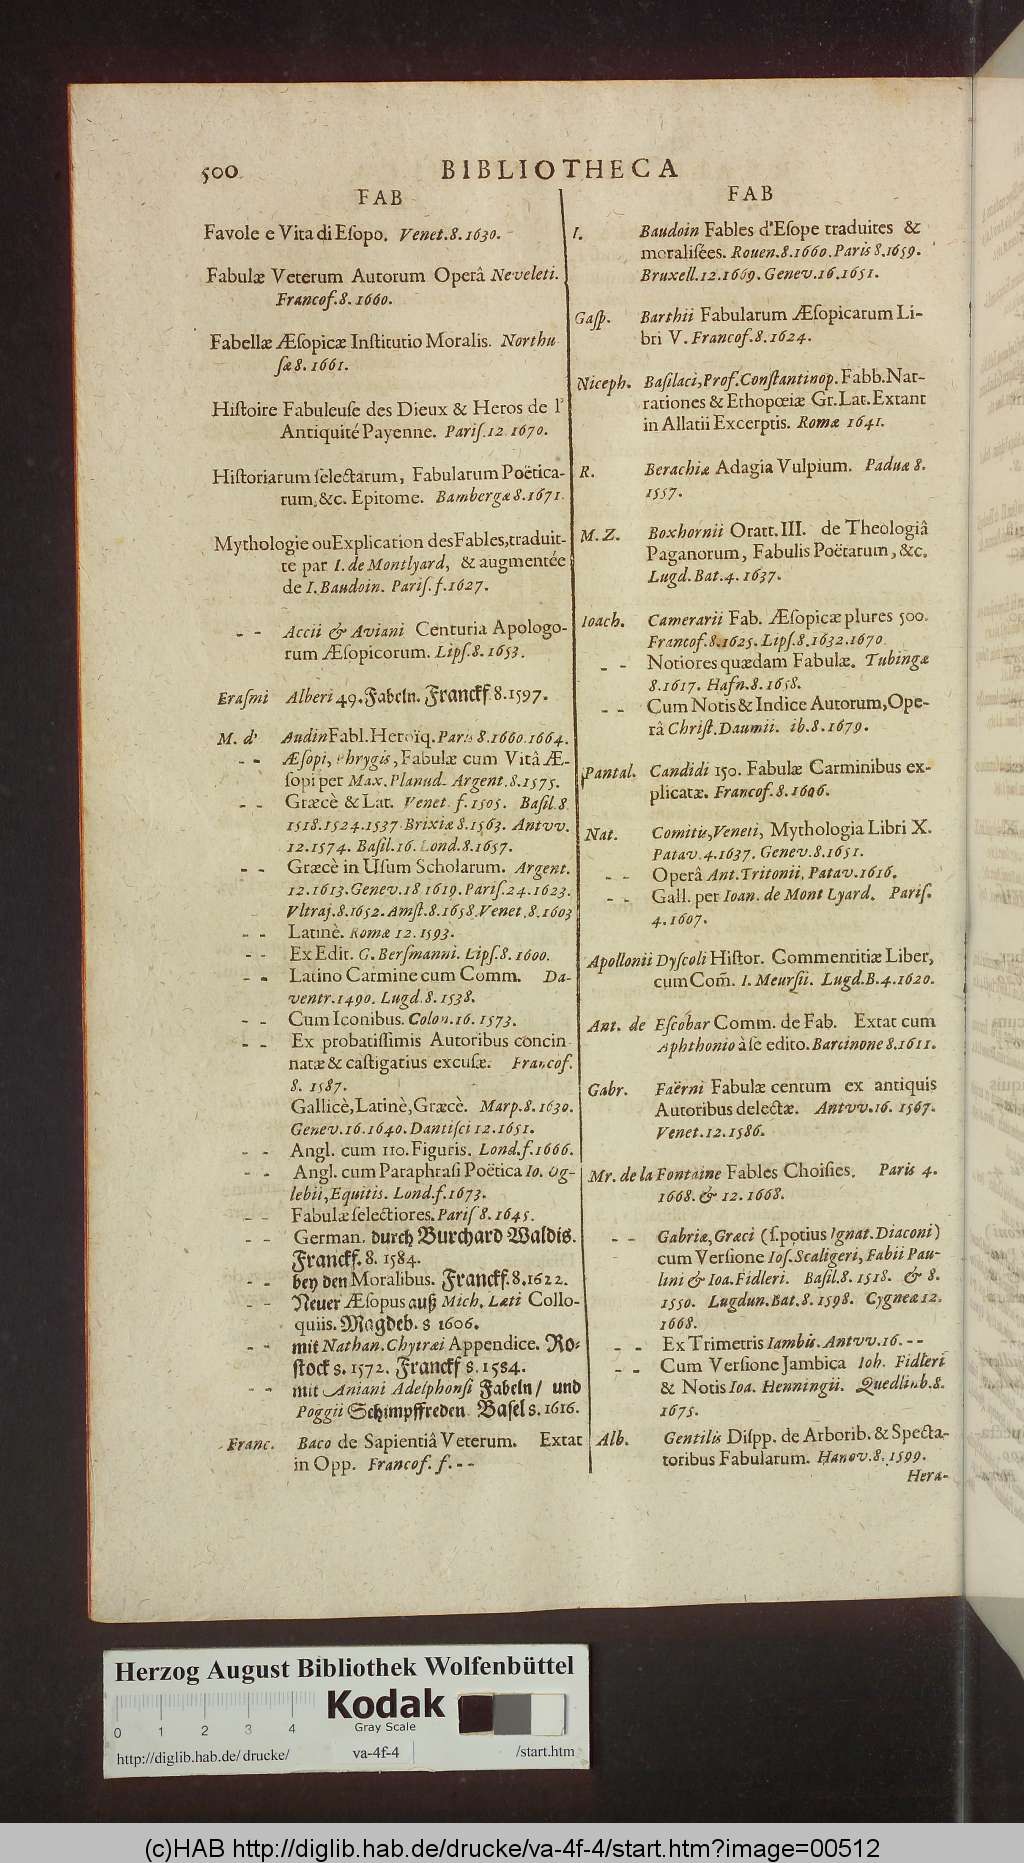 500 BIBLIOTHECA
FAB
Favole e Vita di Eſopo. Venet. 8. 1630.
Fabulæ Veterum Autorum Operâ Neveleti.
Francof. 8. 1660.
Fabellæ Æſopicæ Inſtitutio Moralis. Northu
ſæ 8. 1661.
Hiſtoire Fabuleuſe des Dieux & Heros de l'
Antiquité Payenne. Pariſ. 12 1670.
Hiſtoriarum ſelectarum, Fabularum Poëtica-
rum, &c. Epitome. Bambergæ 8. 1671.
Mythologie ou Explication des Fables, traduit-
te par I. de Montlyard, & augmentée
de I. Baudoin. Pariſ. f. 1627.
- - Accii & Aviani Centuria Apologo-
rum Æſopicorum. Lipſ. 8. 1653.
Eraſmi Alberi 49. Fabeln. Franckf 8. 1597.
M. d' Audin Fabl. Heroïq. Paris 8. 1660. 1664.
- - Æſopi, Phrygis, Fabulæ cum Vitâ Æ-
ſopi per Max. Planud. Argent. 8. 1575.
- - Græcè & Lat. Venet. f. 1505. Baſil. 8.
1518. 1524. 1537. Brixiæ 8. 1563. Antvv.
12. 1574. Baſil. 16. Lond. 8. 1657.
- - Græcè in Uſum Scholarum. Argent.
12. 1613. Genev. 18 1619. Pariſ. 24. 1623.
Vltraj. 8. 1652. Amſt. 8. 1658. Venet. 8. 1603
- - Latinè. Romæ 12. 1593.
- - Ex Edit. G. Berſmanni. Lipſ. 8. 1600.
- - Latino Carmine cum Comm. Da-
ventr. 1490. Lugd. 8. 1538.
- - Cum Iconibus. Colon. 16. 1573.
- - Ex probatiſſimis Autoribus concin
natæ & caſtigatius excuſæ. Francof.
8. 1587.
Gallicè, Latinè, Græcè. Marp. 8. 1630.
Genev. 16. 1640. Dantiſci 12. 1651.
- - Angl. cum 110. Figuris. Lond. f. 1666.
- - Angl. cum Paraphraſi Poëtica Io. Og-
lebii, Equitis. Lond. f. 1673.
- - Fabulæ ſelectiores. Pariſ 8. 1645.
- - German. durch Burchard Waldis.
Franckf. 8. 1584.
- - bey den Moralibus. Franckf. 8. 1622.
- - Neuer Æſopus auß Mich. Læti Collo-
quiis. Magdeb. 8 1606.
- - mit Nathan. Chytræi Appendice. Ro-
ſtock 8. 1572. Franckf 8. 1584.
- - mit Aniani Adelphonſi Fabeln / und
Poggii Schimpffreden. Baſel 8. 1616.
Franc. Baco de Sapientiâ Veterum. Extat
in Opp. Francof. f. - -
FAB
I. Baudoin Fables d'Eſope traduites &
moraliſées. Rouen. 8. 1660. Paris 8. 1659.
Bruxell. 12. 1669. Genev. 16. 1651.
Gaſp. Barthii Fabularum Æſopicarum Li-
bri V. Francof. 8. 1624.
Niceph. Baſilaci, Prof. Conſtantinop. Fabb. Nar-
rationes & Ethopœiæ Gr. Lat. Extant
in Allatii Excerptis. Romæ 1641.
R. Berachiæ Adagia Vulpium. Paduæ 8.
1557.
M. Z. Boxhornii Oratt. III. de Theologiâ
Paganorum, Fabulis Poëtarum, &c.
Lugd. Bat. 4. 1637.
Ioach. Camerarii Fab. Æſopicæ plures 500.
Francof. 8. 1625. Lipſ. 8. 1632. 1670
- - Notiores quædam Fabulæ. Tubingæ
8. 1617. Hafn. 8. 1658.
- - Cum Notis & Indice Autorum, Ope-
râ Chriſt. Daumii. ib. 8. 1679.
Pantal. Candidi 150. Fabulæ Carminibus ex-
plicatæ. Francof. 8. 1606.
Nat. Comitis, Veneti, Mythologia Libri X.
Patav. 4. 1637. Genev. 8. 1651.
- - Operâ Ant. Tritonii. Patav. 1616.
- - Gall. per Ioan. de Mont Lyard. Pariſ.
4. 1607.
Apollonii Dyſcoli Hiſtor. Commentitiæ Liber,
cum Com̃. I. Meurſii. Lugd. B. 4. 1620.
Ant. de Eſcobar Comm. de Fab. Extat cum
Aphthonio à ſe edito. Barcinone 8. 1611.
Gabr. Faërni Fabulæ centum ex antiquis
Autoribus delectæ. Antvv. 16. 1567.
Venet. 12. 1586.
Mr. de la Fontaine Fables Choiſies. Paris 4.
1668. & 12. 1668.
- - Gabriæ, Græci (ſ. potius Ignat. Diaconi)
cum Verſione Ioſ. Scaligeri, Fabii Pau-
lini & Ioa. Fidleri. Baſil. 8. 1518. & 8.
1550. Lugdun. Bat. 8. 1598. Cygneæ 12.
1668.
- - Ex Trimetris Iambis. Antvv. 16. - -
- - Cum Verſione Jambica Ioh. Fidleri
& Notis Ioa. Henningii. Quedlinb. 8.
1675.
Alb. Gentilis Diſpp. de Arborib. & Specta-
toribus Fabularum. Hanov. 8. 1599.
Hera-
Herzog August Bibliothek Wolfenbüttel
Kodak
Gray Scale
0 1 2 3 4
http://diglib.hab.de/drucke/ va-4f-4 /start.htm
(c)HAB http://diglib.hab.de/drucke/va-4f-4/start.htm?image=00512